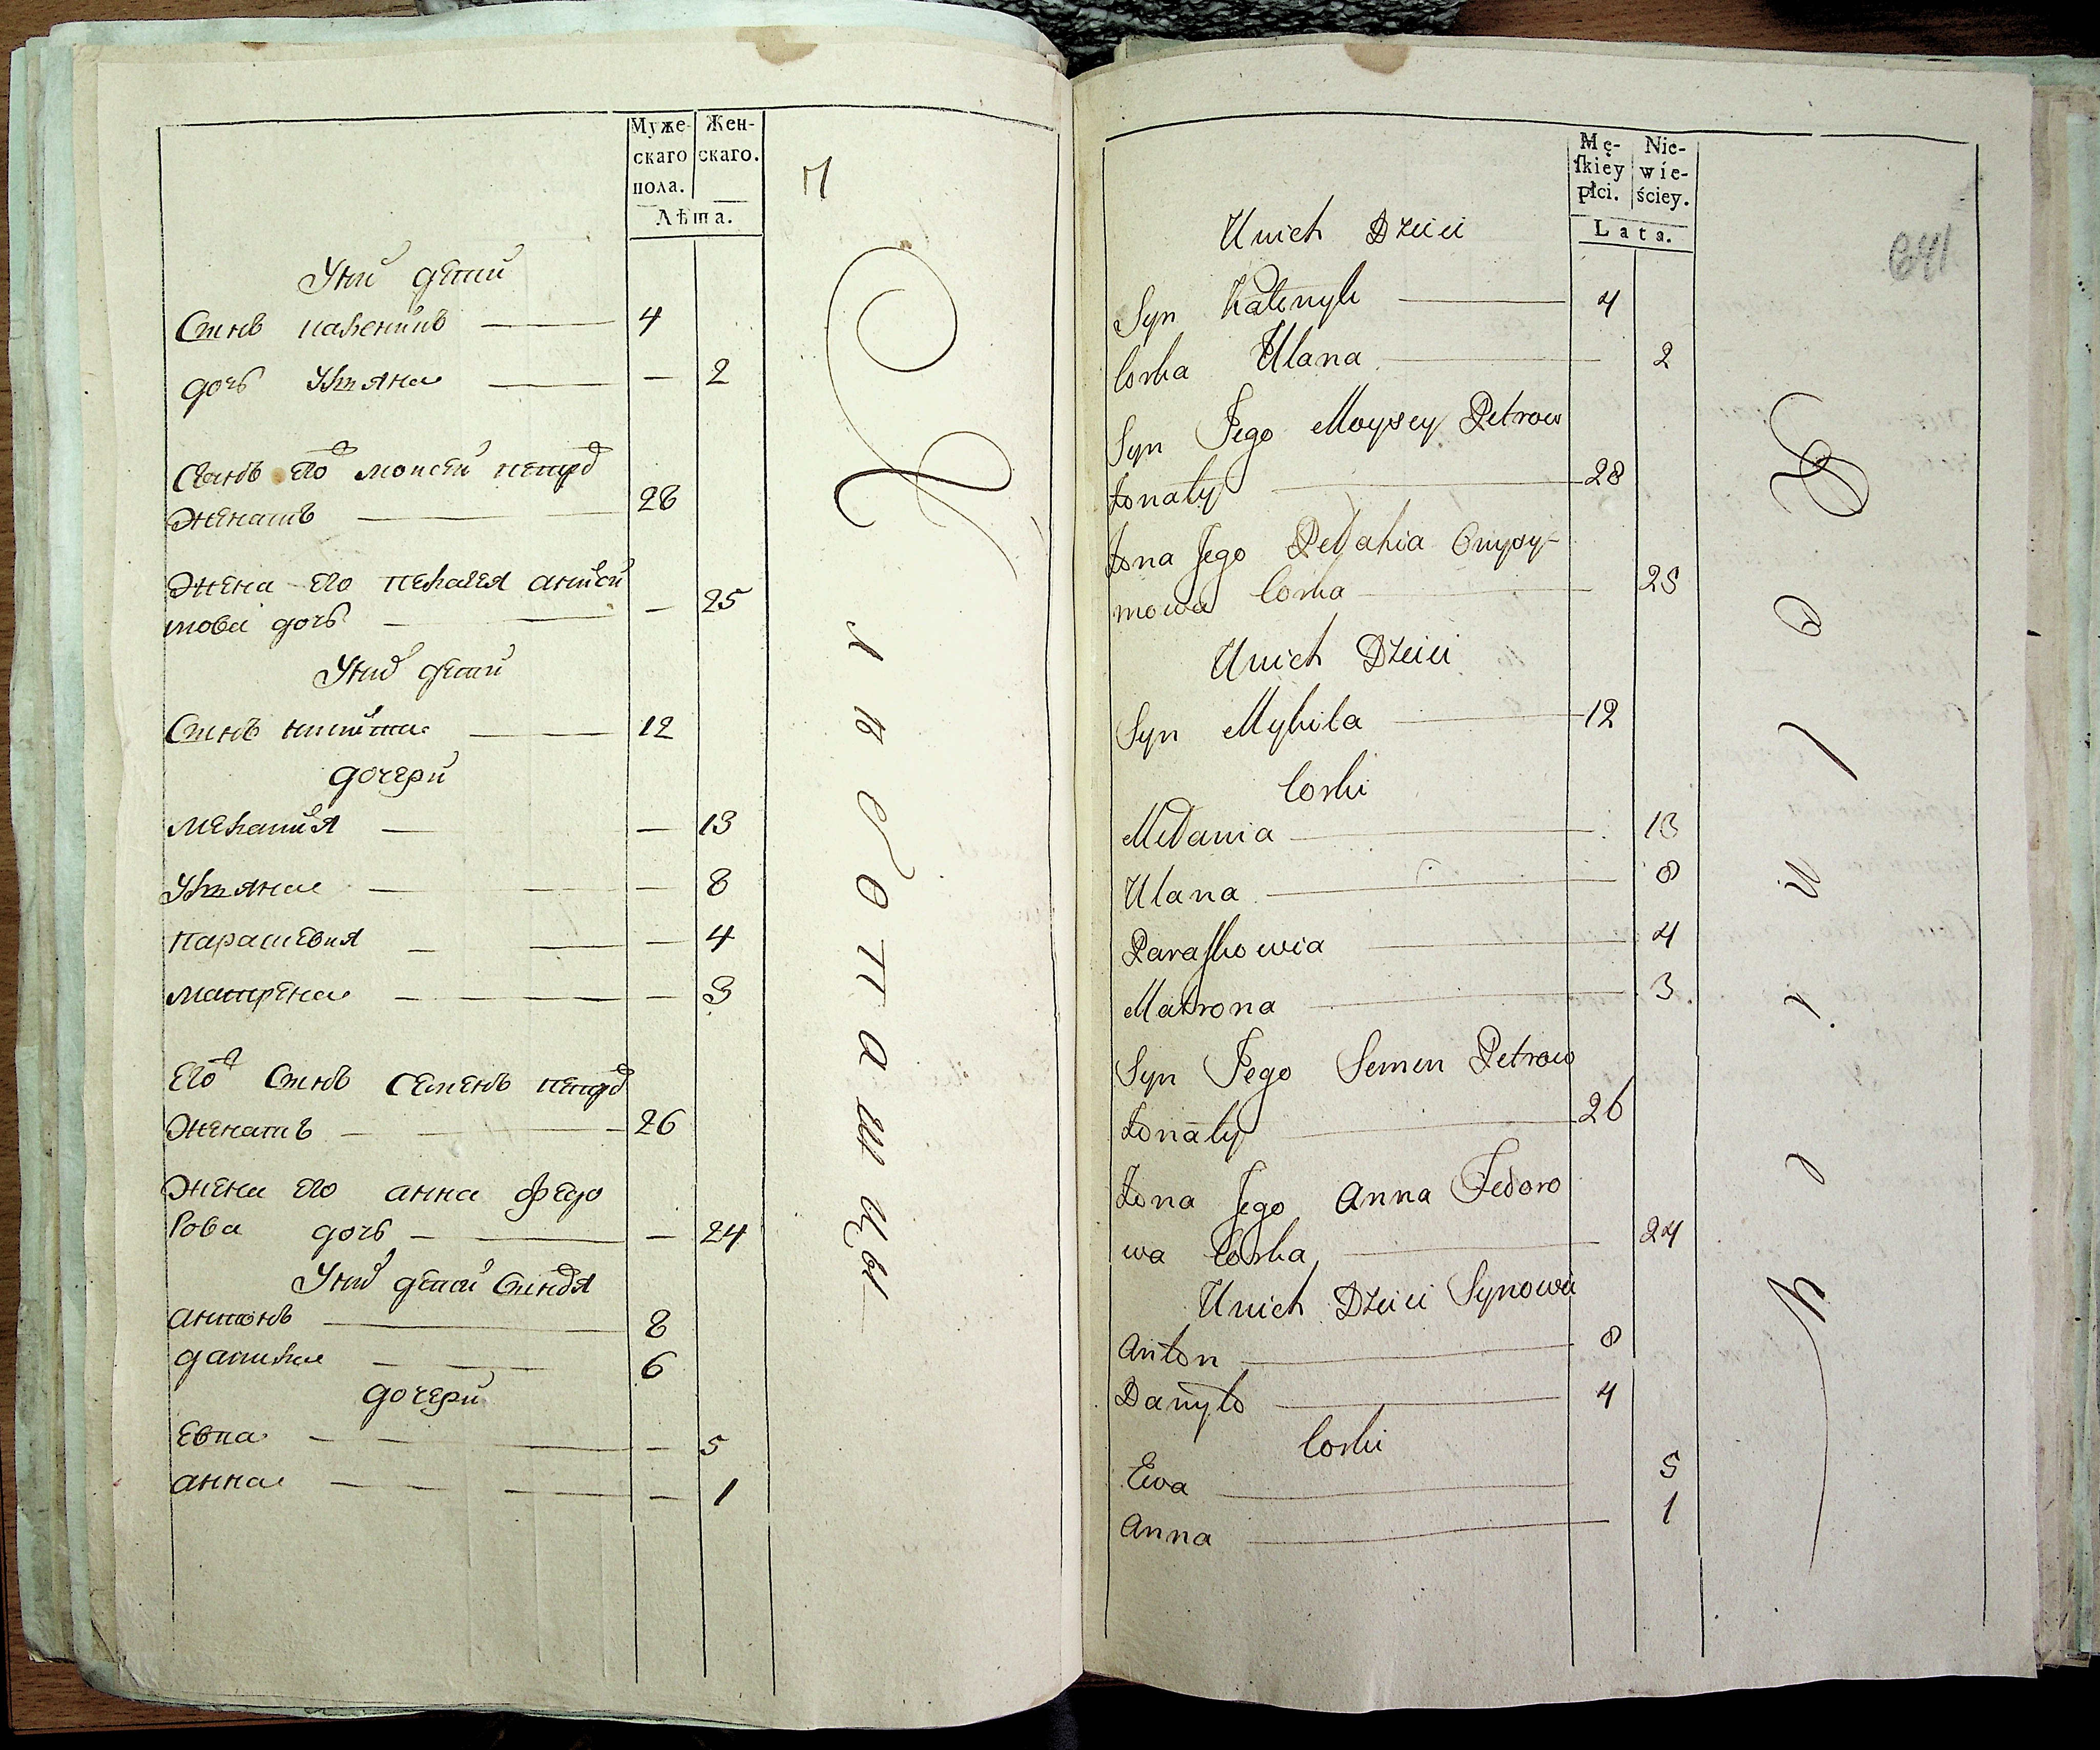 Муже-
скаго
пола.
Жен-
скаго.
Лѣта.
У них дети
Сынъ каленикъ 4
дочь Ульяна — 2
Сынъ его моисей петров
женатъ 28
Жена его пелагея аниси
мова дочь — 25
У них дети
Сынъ никита 12
дочери
мелания — 13
Ульяна — 8
парасковия — 4
матрена — 3
Его Сынъ Семенъ петров
женатъ 26
Жена его анна федо
рова дочь — 24
У них дети Сыновя
антонъ 8
данила 6
дочери
Евва — 5
анна — 1
Mę-
ſkiey
płci.
Nie-
wie-
ściey.
Lata.
641
Unich Dzieci
Syn Kalenyk 4
Corka Ulana 2
Syn Jego Moysey Petrow
żonaty 28
żona Jego Pelahia Onysy-
mowa Corka 25
Unich Dzieci
Syn Mykita 12
Corki
Melania 13
Ulana 8
Paraſkowia 4
Matrona 3
Syn Jego Semen Petrow
żonaty 26
żona Jego Anna Fedoro
wa Corka 24
Unich Dzieci Synowie
Anton 8
Danyło 4
Corki
Ewa 5
Anna 1